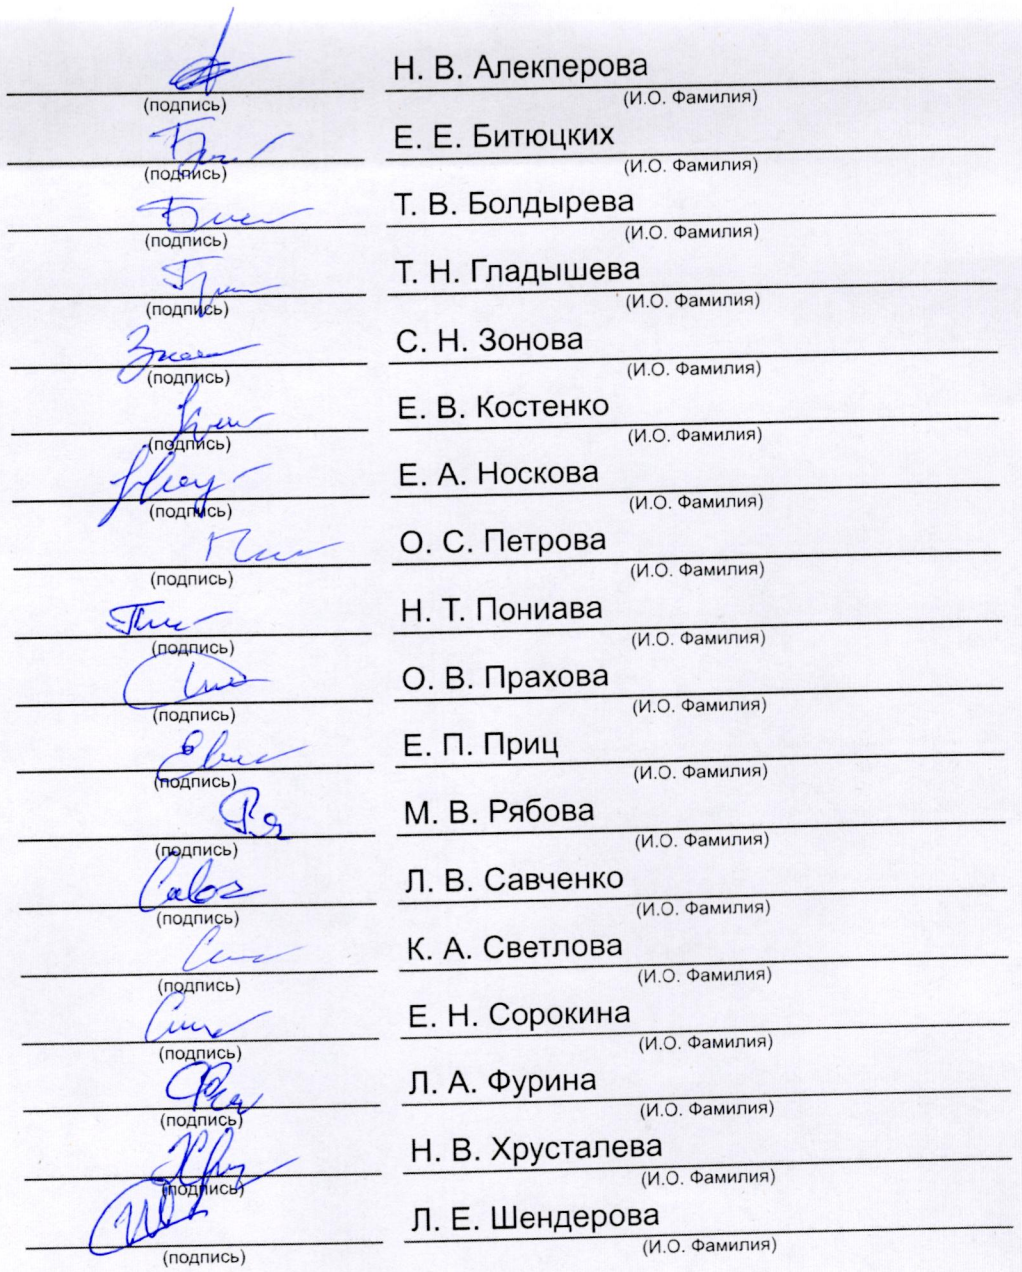 Н. В. Алекперова
(подпись) (И.О. Фамилия)
Е. Е. Битюцких
(подпись) (И.О. Фамилия)
Т. В. Болдырева
(подпись) (И.О. Фамилия)
Т. Н. Гладышева
(подпись) (И.О. Фамилия)
С. Н. Зонова
(подпись) (И.О. Фамилия)
Е. В. Костенко
(подпись) (И.О. Фамилия)
Е. А. Носкова
(подпись) (И.О. Фамилия)
О. С. Петрова
(подпись) (И.О. Фамилия)
Н. Т. Пониава
(подпись) (И.О. Фамилия)
О. В. Прахова
(подпись) (И.О. Фамилия)
Е. П. Приц
(подпись) (И.О. Фамилия)
М. В. Рябова
(подпись) (И.О. Фамилия)
Л. В. Савченко
(подпись) (И.О. Фамилия)
К. А. Светлова
(подпись) (И.О. Фамилия)
Е. Н. Сорокина
(подпись) (И.О. Фамилия)
Л. А. Фурина
(подпись) (И.О. Фамилия)
Н. В. Хрусталева
(подпись) (И.О. Фамилия)
Л. Е. Шендерова
(подпись) (И.О. Фамилия)